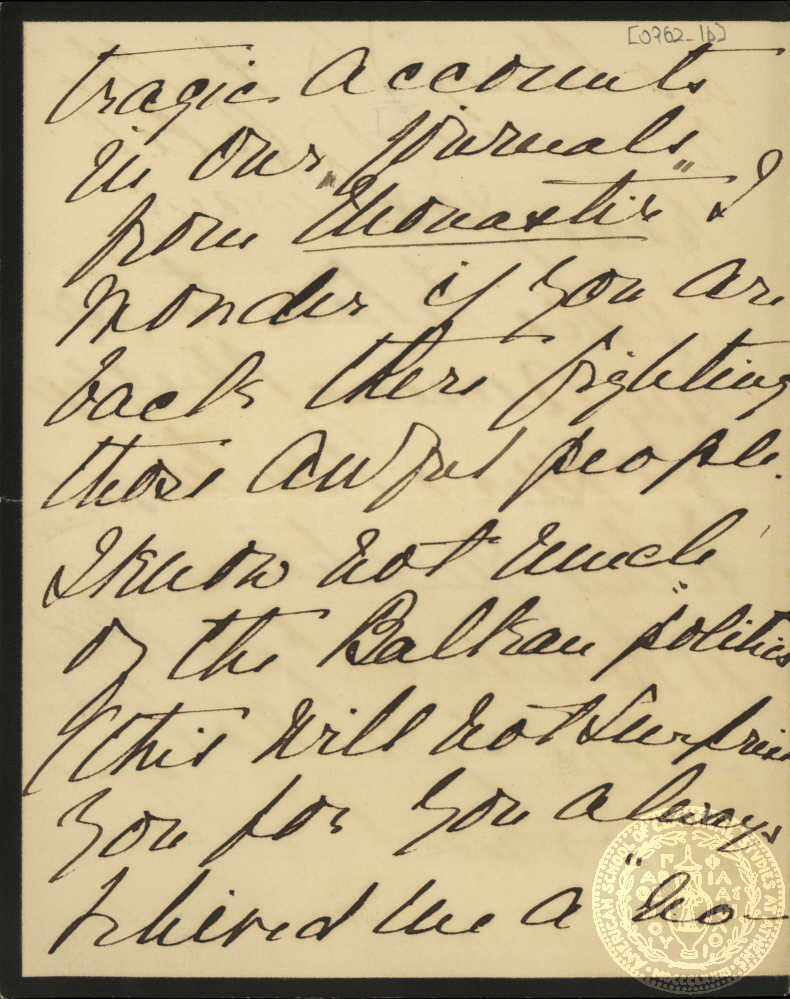 [0962-1b]
tragic accounts
in our journals
from "Monastir" I
wonder if you are
back there fighting
those awful people.
I know not much
of the Balkan "politics
(this will not surprise
you for you always
me a "no-
AMERICAN SCHOOL OF CLASSICAL STUDIES AT ATHENS